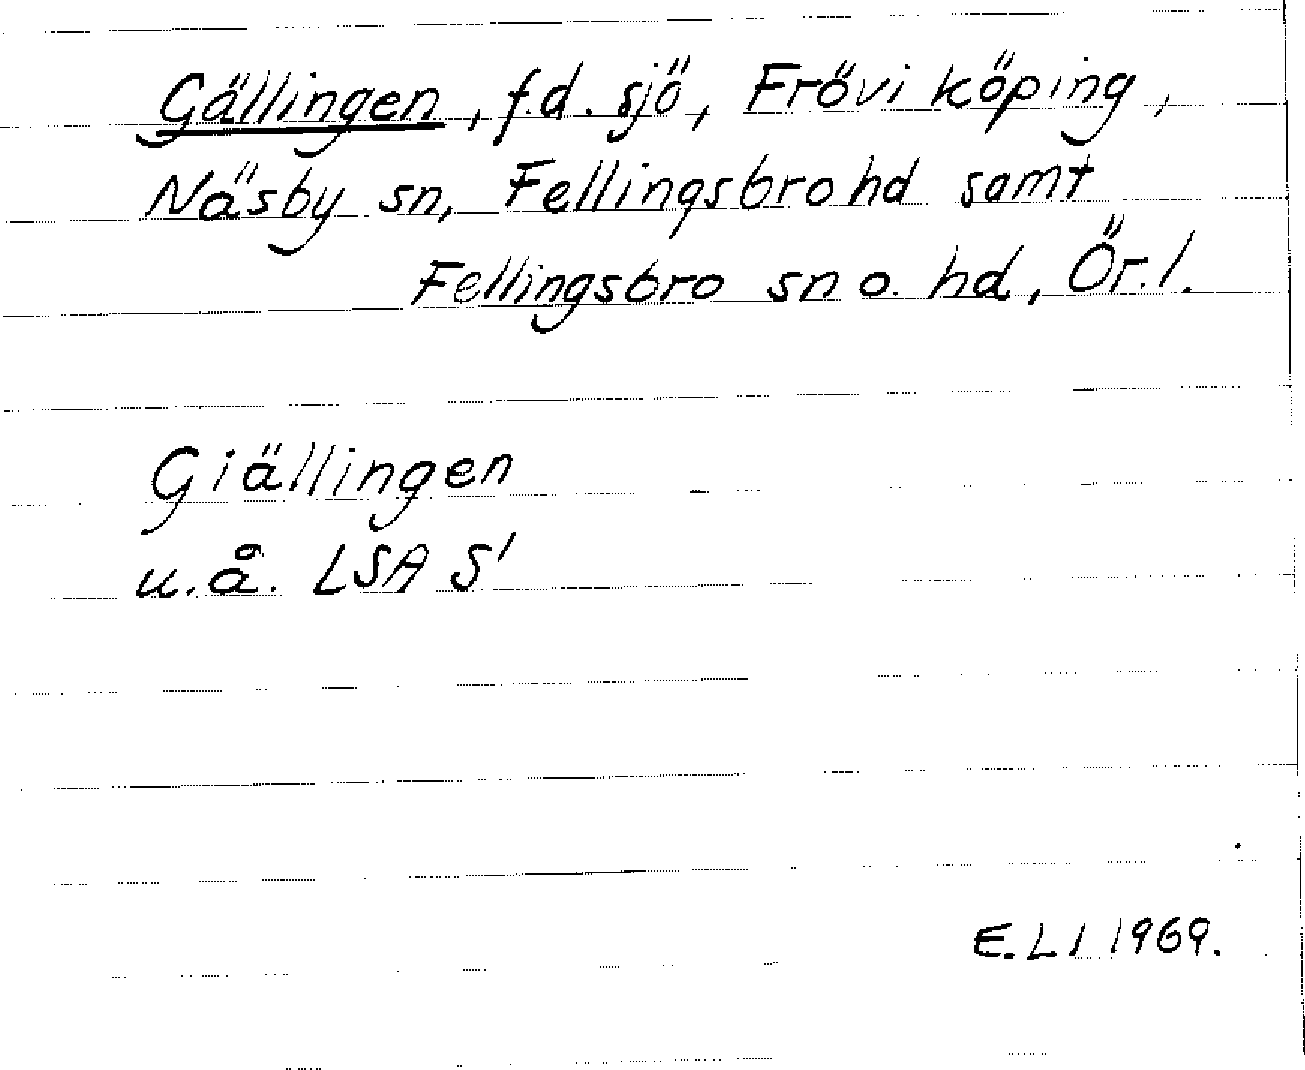 Gällingen, f.d. sjö, Frövi köping,
Näsby sn, Fellingsbro hd samt
Fellingsbro sn o. hd, Ör. l.
Giällingen
u.å. LSA S'
E. L I 1969.